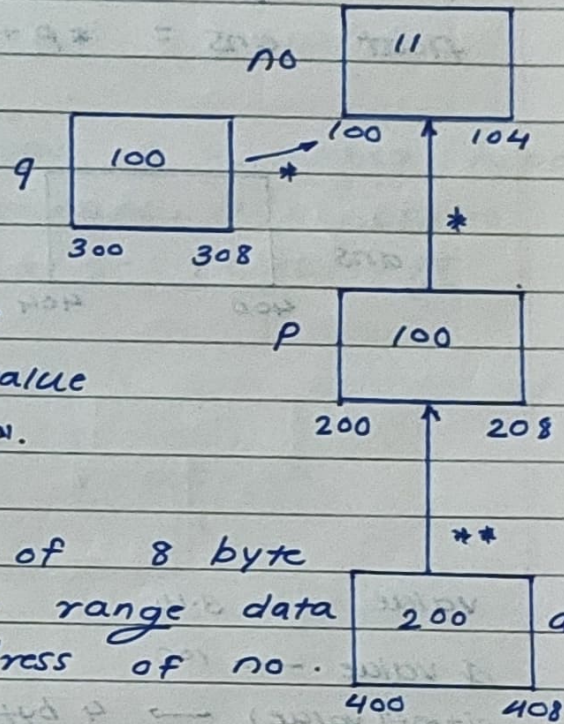 no 11
100 104
q 100 *
300 308
*
P 100
alue
200 208
of 8 byte
**
range data 200
ress of no.
400 408